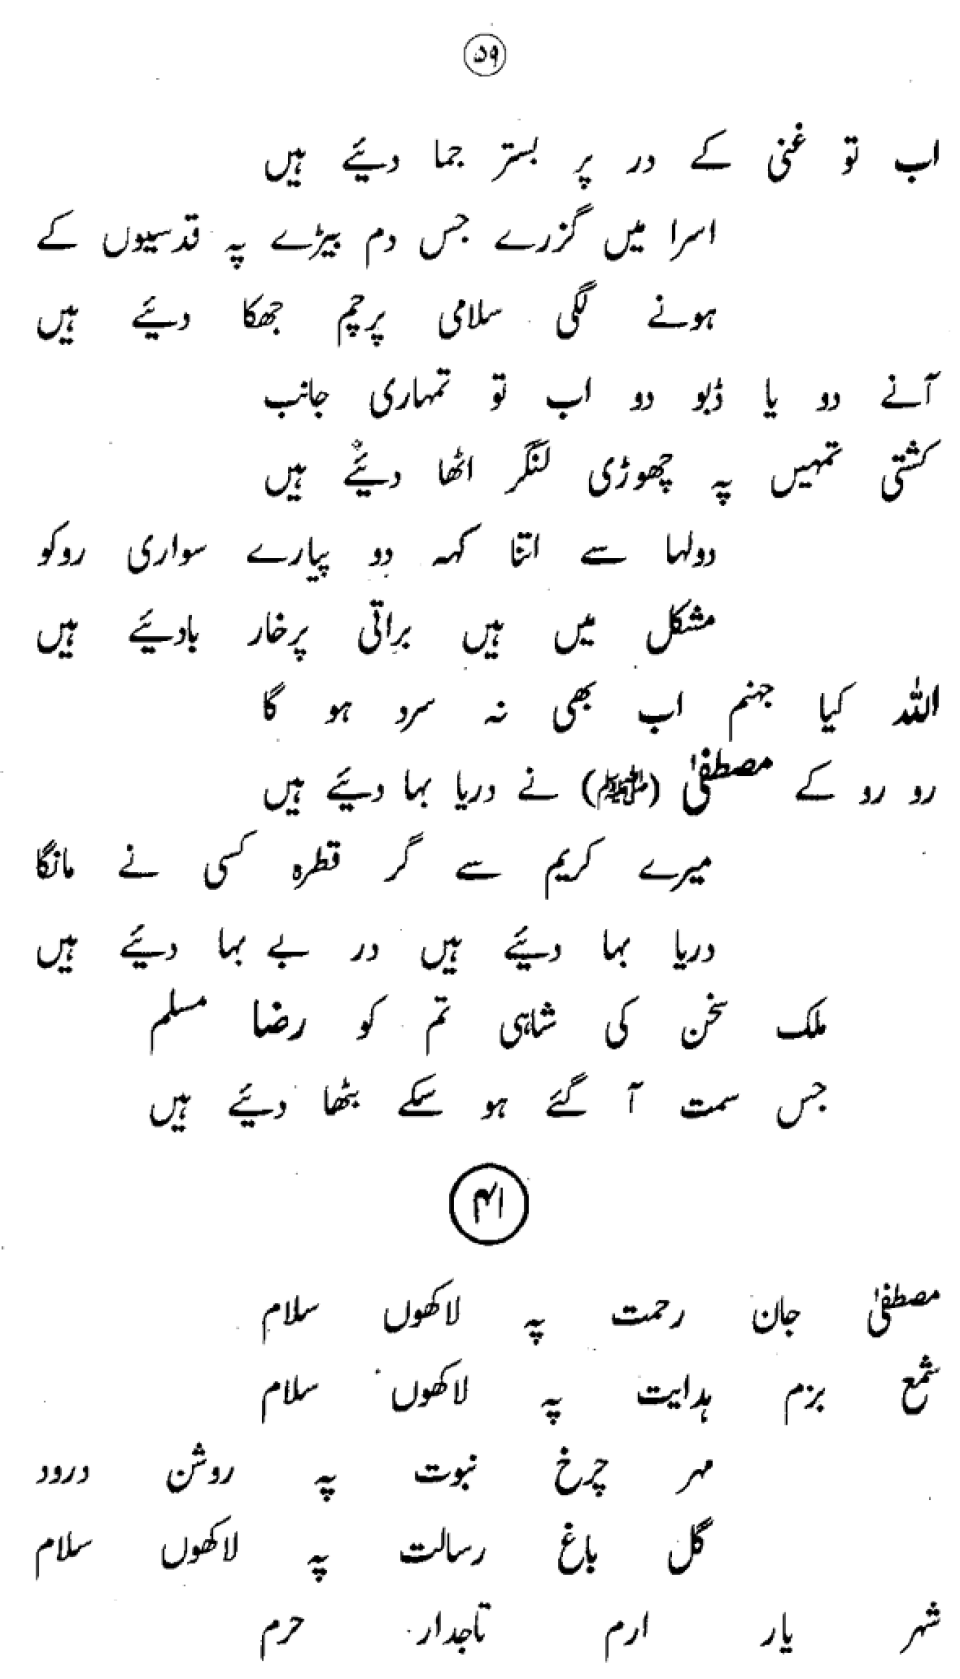 ۵۹
اب تو غنی کے در پر بستر جما دیئے ہیں
اسرا میں گزرے جس دم بیڑے پہ قدسیوں کے
ہونے لگی سلامی پرچم جھکا دیئے ہیں
آنے دو یا ڈبو دو اب تو تمہاری جانب
کشتی تمہیں پہ چھوڑی لنگر اٹھا دیئے ہیں
دولہا سے اتنا کہہ دو پیارے سواری روکو
مشکل میں ہیں براتی پرخار بادیئے ہیں
اللہ کیا جہنم اب بھی نہ سرد ہو گا
رو رو کے مصطفیٰ (ﷺ) نے دریا بہا دیئے ہیں
میرے کریم سے گر قطرہ کسی نے مانگا
دریا بہا دیئے ہیں در بے بہا دیئے ہیں
ملک سخن کی شاہی تم کو رضا مسلم
جس سمت آ گئے ہو سکے بٹھا دیئے ہیں
۴۱
مصطفیٰ جان رحمت پہ لاکھوں سلام
شمع بزم ہدایت پہ لاکھوں سلام
مہر چرخ نبوت پہ روشن درود
گل باغ رسالت پہ لاکھوں سلام
شہر یار ارم تاجدار حرم